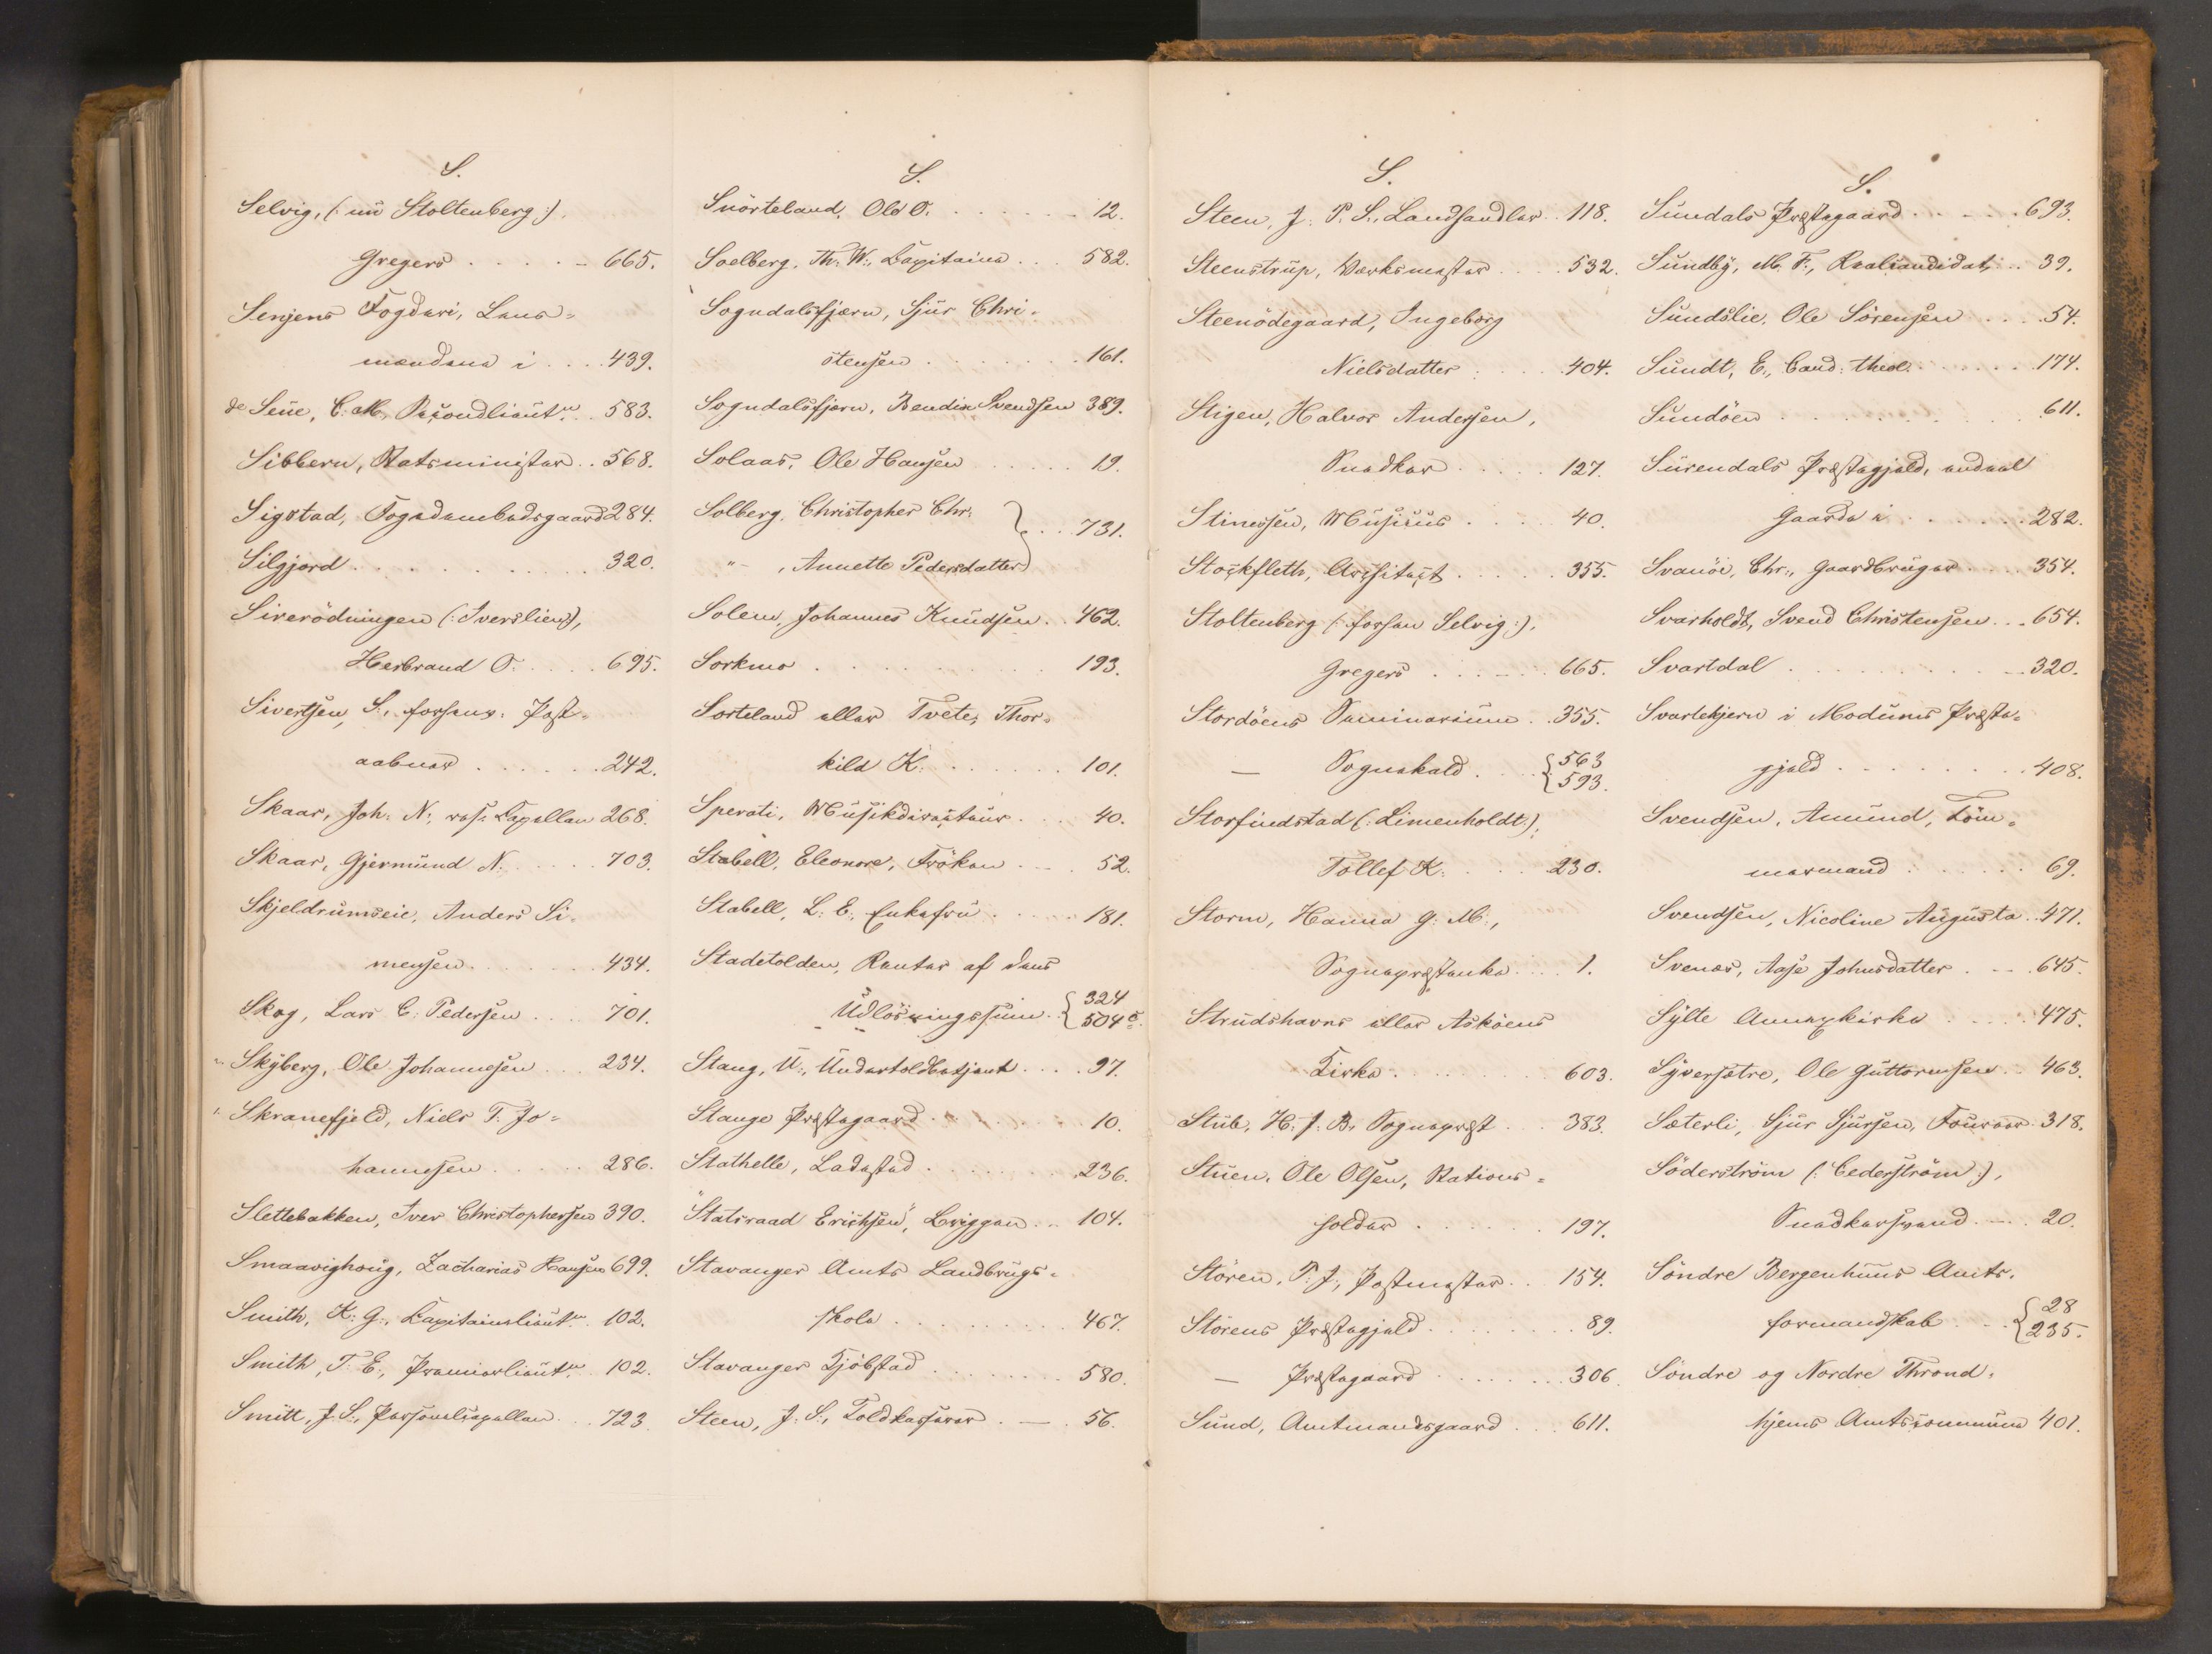 S.
Selvig, (: nu Stoltenberg :),
Gregers . . . . . 665.
Senjens Fogderi, Lens-
mændene i . . . . 439.
de Seue, C. M., Secondlieutn. . . 583.
Sibbern, Statsminister . . 568.
Sigstad, Fogedembedsgaard 284.
Silgjord . . . . . . . . 320.
Siverödningen (: Iverslien :),
Herbrand O. . . . . 695.
Sivertsen, S., forhenv: Post-
aabner . . . . . . 242.
Skaar, Joh: N:, res. Capellan 268.
Skaar, Gjermund N: . . . . 703.
Skjeldrumseie, Anders Si-
mensen . . . . . . 434.
Skog, Lars C: Pedersen . . . 701.
Skyberg, Ole Johannesen . . . 234.
Skranefjeld, Niels T. Jo-
hannesen . . . . . 286.
Slettebakken, Iver Christophersen 390.
Smaavighoug, Zacharias Hansen 699.
Smith, K: G:, Kapitainlieutn. . 102.
Smith, T: E:, Premierlieutn. . 102.
Smitt, J. S., Personelcapellan . . 723
S.
Snörteland, Ole O. . . . . . . 12.
Soelberg, Th: W:, Kapitaine . . . 582.
Sogndalsfjæren, Sjur Chri-
stensen . . . . . . . 161.
Sogndalsfjæren, Bendix Svendsen 389.
Solaas, Ole Hansen . . . . . 19.
Solberg, Christopher Chr:
" - , Annette Pedersdatter } . . 731.
Solem, Johannes Knudsen . . 462.
Sorkmo . . . . . . . . . 193.
Sorteland eller Tvete, Thor-
kild K. . . . . . . 101.
Sperati, Musikdirecteur . . . 40.
Stabell, Eleonore, Fröken . . . 52.
Stabell, L: E:, Enkefru . . . . 181.
Stadstolden, Renter af dens
Udlösningssum . { 324
504 .
Stang, U:, Undertoldbetjent . . . . 97.
Stange Præstegaard . . . . . . 10.
Stathelle, Ladested . . . . . . . 236.
"Statsraad Erichsen", Briggen . . 104.
Stavanger Amts Landbrugs-
skole . . . . . . . . . 467.
Stavanger Kjöbstad . . . . . . . 580.
Steen, J: S:, Toldkasserer . — . 56.
S.
Steen, J: P. S., Landhandler . . 118.
Steenstrup, Værksmester . . . . 532.
Steenödegaard, Ingeborg
Nielsdatter . . . . . 404.
Stigen, Halvor Andersen,
Snedker . . . . . 127.
Stinessen, Musicus . . . 40.
Stockfleth, Architect . . . . . 355.
Stoltenberg (: forhen Selvig :),
Gregers . . . . . . 665.
Stordöens Seminarium . . 355.
— Sognekald . . . { 563
593.
Storfindstad (: Limenholdt :),
Tollef K. . . . . 230.
Storm, Hanna G: M:,
Sognepræstenke . . . . 1.
Strudshavns eller Asköens
Kirke . . . . . . . 603.
Stub, H: J: B. Sognepræst . . . 383.
Stuen, Ole Olsen, Stations-
holder . . . . . . 197.
Stören, T: J:, Postmester . . 154.
Störens Præstegjeld . . . . . . . 89.
— Præstegaard . . . . . . . 306.
Sund, Amtmandsgaard . . . 611.
S.
Sundals Præstegaard . . . . . . 693.
Sundby, M. F., Realcandidat . . 39.
Sundslie, Ole Sörensen . . . . 54.
Sundt, E., Cand: theol. . . . . . . 174.
Sundöen . . . . . . . . . . 611.
Surendals Præstegjeld, endeel
Gaarde i . . . . . . . 282.
Svanöe, Chr., Gaardbruger . . . . . 354.
Svarholdt, Svend Christensen . . . 654.
Svartdal . . . . . . . . . . 320.
Svartekjern i Modums Præste-
gjeld . . . . . . . . 408.
Svendsen, Amund, Töm-
mermand . . . . . . 69.
Svendsen, Nicoline Augusta . . 471.
Svenæs, Aase Johnsdatter . . . . 645.
Sylte Annexkirke . . . . . 475.
Syversætre, Ole Guttormsen . . 463.
Sæterli, Sjur Sjursen, Foureer . 318.
Söderström (: Cederström :),
Snedkersvend . — . 20.
Söndre Bergenhuus Amts-
formandskab . . . { 28
235.
Söndre og Nordre Thrond-
hjems Amtscommune 401.